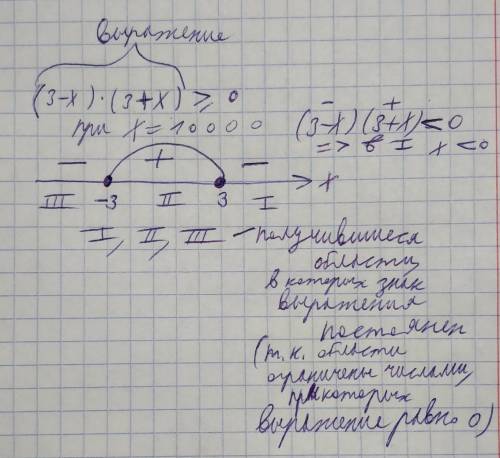 выражение
(3-x)·(3+x) ≥ 0
при x=10000
- +
(3-x)(3+x)<0
=> в I x<0
- + -
III -3 II 3 I x
I, II, III - получившиеся
области,
в которых знак
выражения
постоянен
(т.к. области
ограничены числами,
при которых
выражение равно 0)